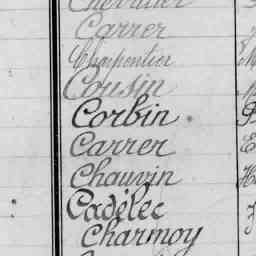 Chevallier
Carrer
Charpentier
Cousin
Corbin
Carrer
Chauvin
Cadélec
Charmoy